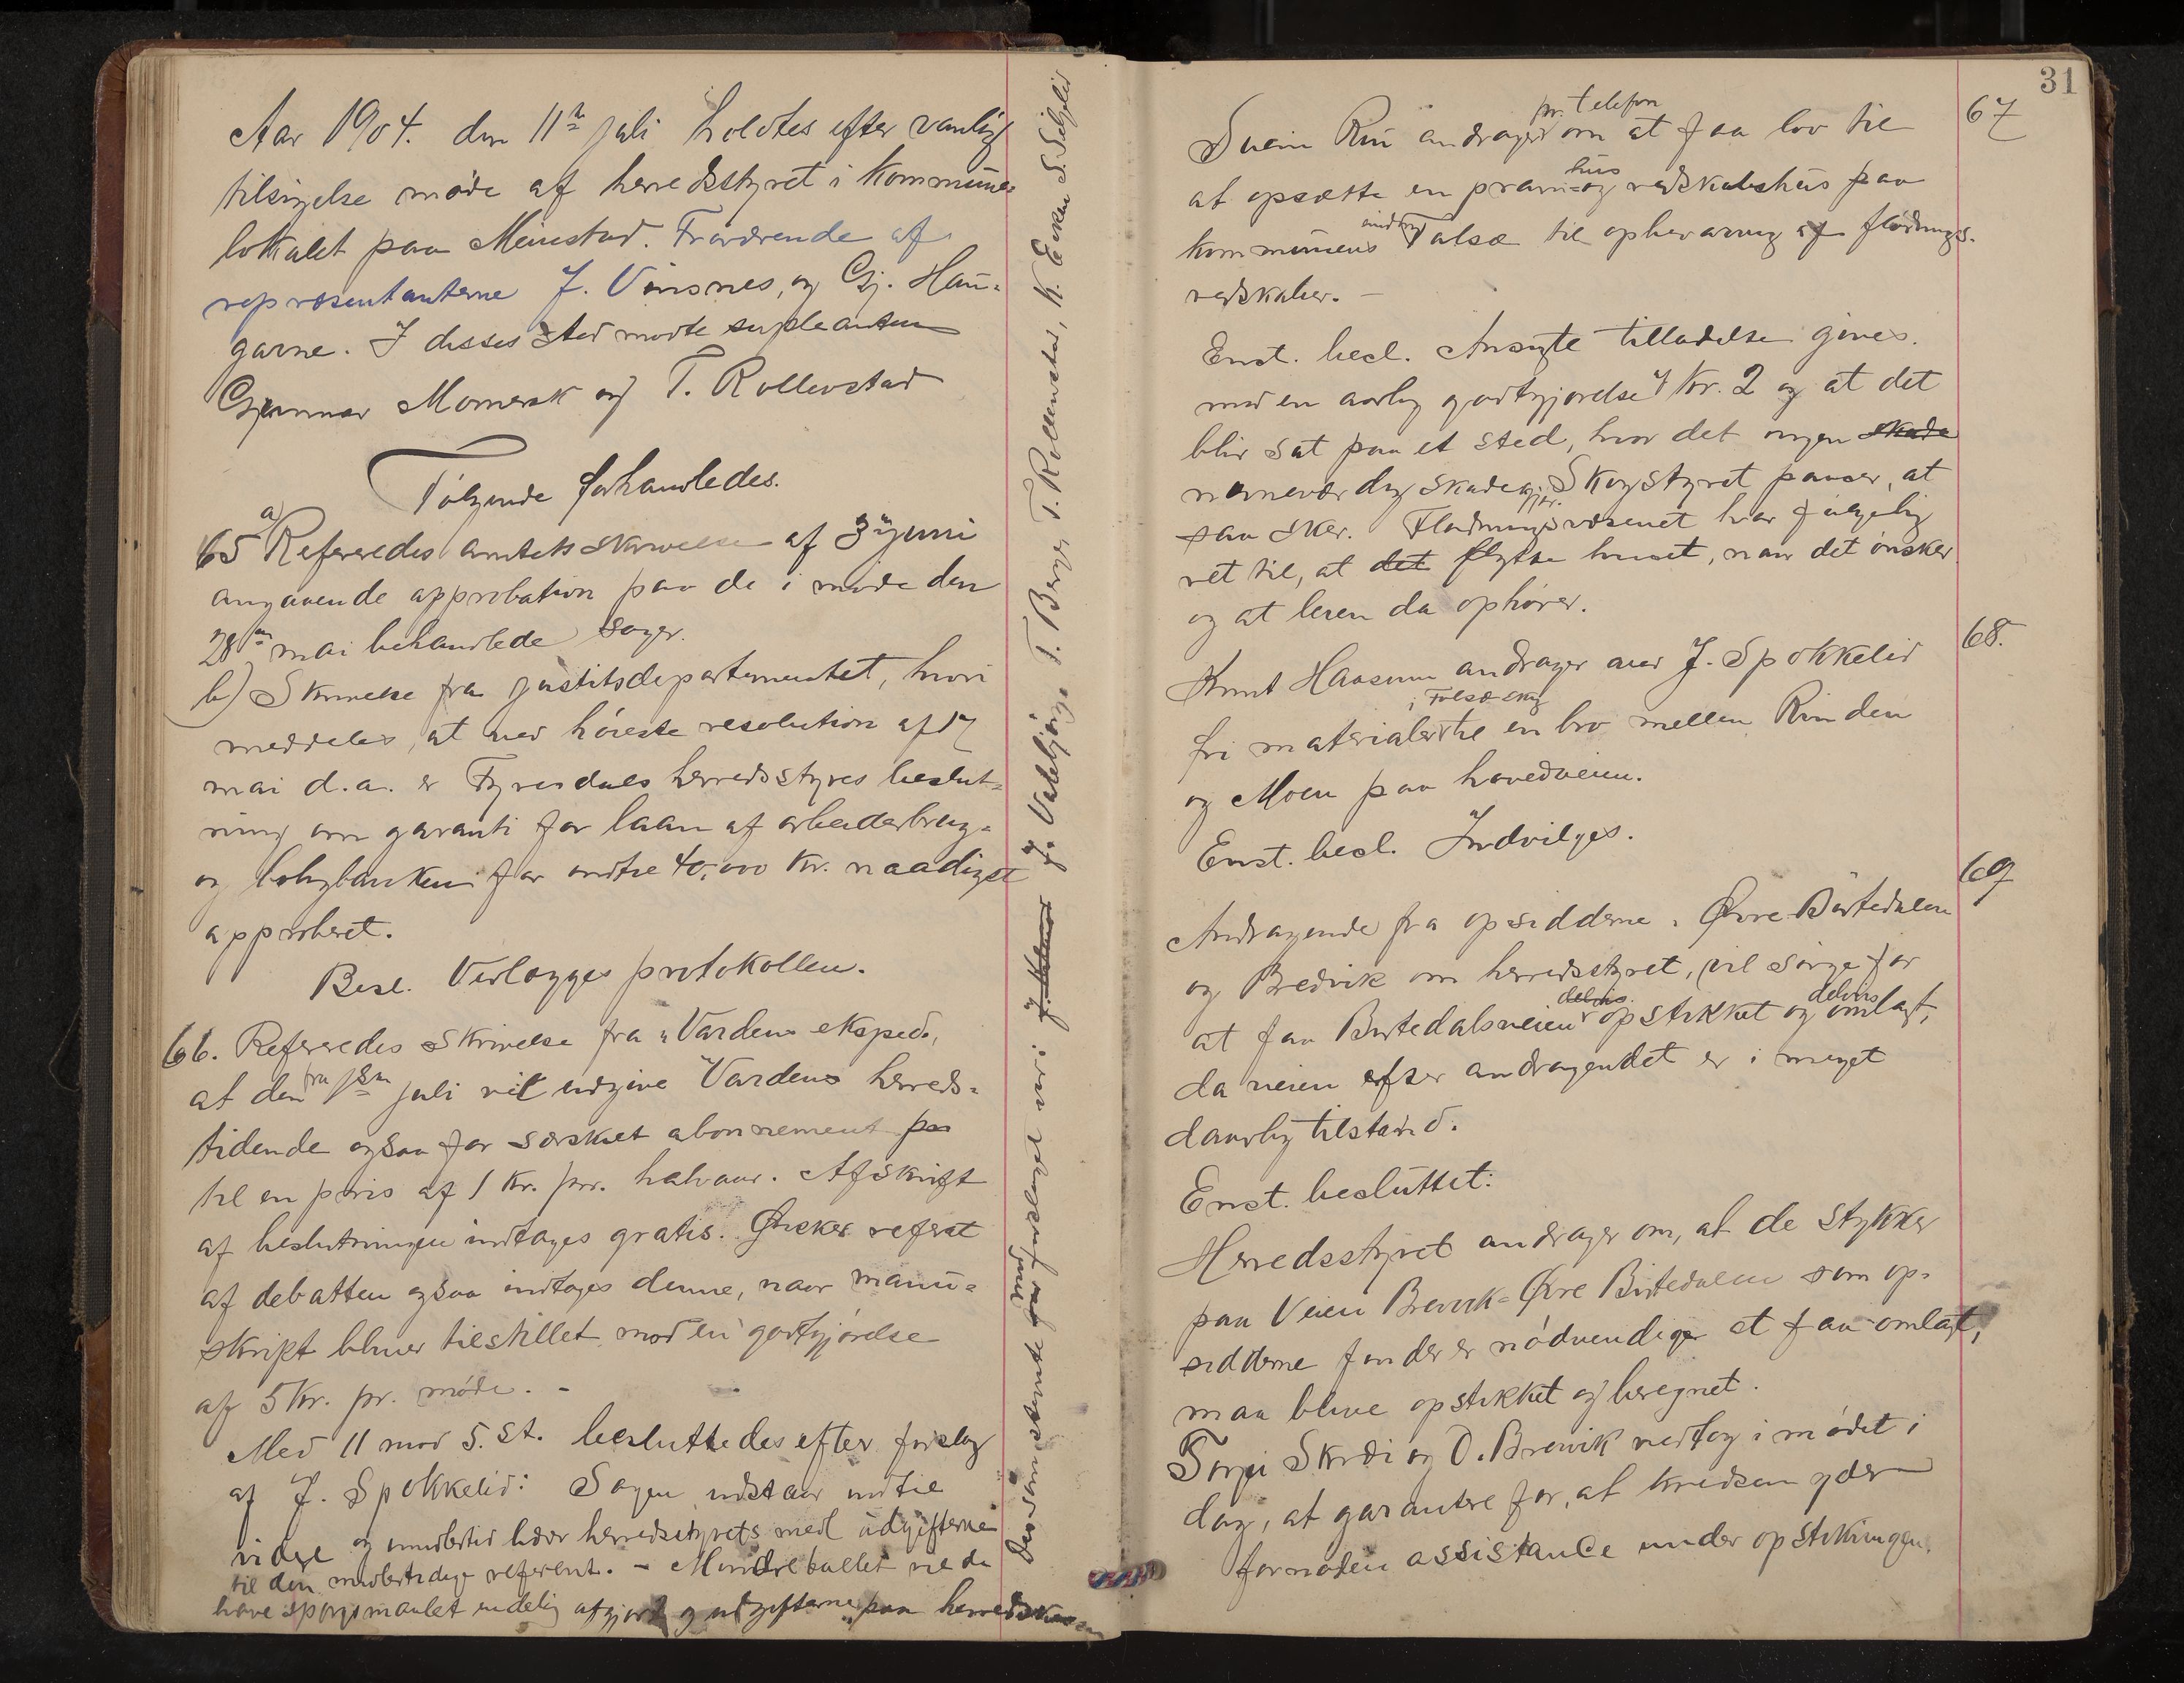 Aar 1904. den 11te juli holdtes efter vanlig
tilsigelse møde af herredsstyret i kommune-
lokalet paa Meiestad. Fraværende af
repræsentanterne J. Vinsnes, og Gj. Hau-
garne. I disses sted mødte supleanten
Gunnar Momrak og T. Rollevstad
Følgende forhandledes.
65 a) Refereredes amtets skrivelse af 3 juni
angaaende approbation paa de i møde den
28de mai behandlede sager.
b) Skrivelse fra justitsdepartementet, hvori
meddeles, at ved høieste resolution af 17
mai d.a. er Fyresdals herredsstyres beslut-
ning om garanti for laan af arbeiderbrug-
og boligbanken for indtil 40,000 kr. naadigst
approberet.
Besl. Vedlægges protokollen.
66. Refereredes skrivelse fra "Vardens eksped.,
at den fra 1ste juli vil udgive Vardens herreds-
tidende ogsaa for særskilt abonnement paa
til en pris af 1 kr. pr. halvaar. Afskrift
af beslutningen indtages gratis. Ønskes referat
af debatten ogsaa indtages denne, naar manu-
skript bliver tilstillet mod en godtgjørelse
af 5 kr. pr. møde. -
Med 11 mod 5. st. besluttedes efter forslag
af J. Spokkelid: Sagen udstaar indtil
videre og imidlertid bær herredsstyrets medl udgifterne
til den midlertidige referent. - Mindretallet vil da
have spørgsmaalet endelig afgjort og udgifterne paa herredskassen
De som stemte for mod forslaget var: J. Vatsbjørge T. Berge T. Rollevstad, K. S. Seljelid
31
67
Svein Rui andrager pr. telefon om at faa lov til
at opsætte en pram-hus og redskabshus paa
kommunens Talsæ til opbevaring af flødnings-
redskaber. -
Enst. besl. Ansøgte tilladelse gives.
mod en aarlig godtgjørelse af kr. 2 og at det
blir sat paa et sted, hvor det ingen skade
nævneværdig skade gjør. Skogstyret passer, at
saa sker. Flødningsvæsenet har følgelig
ret til, at det flytte huset, naar det ønsker
og at leien da ophører.
68.
Knut Haasum andrager ved J. Spokkelid
fri materialer i Folsæ skog til en bro mellem Rinden
og Moen paa hovedveien.
Enst. besl. Indvilges.
69
Andragende fra opsidderne i Øvre-Birtedalen
og Bredvik om herredsstyret, vil sørge for
at faa Birtedalsveien delvis opstikket og delvis omlagt,
da veien efter andragendet er i meget
daarlig tilstand.
Enst. besluttet:
Herredsstyret andrager om, at de stykker
paa Veien Brevik-Øvre Birtedalen som op-
sidderne finder er nødvendige at faa omlagt,
maa blive opstikket og beregnet.
Torgei Skrei og O. Brevik vedtog i mødet i
dag, at garantere for, at kredsen yder
fornøden assistance under opstikningen.